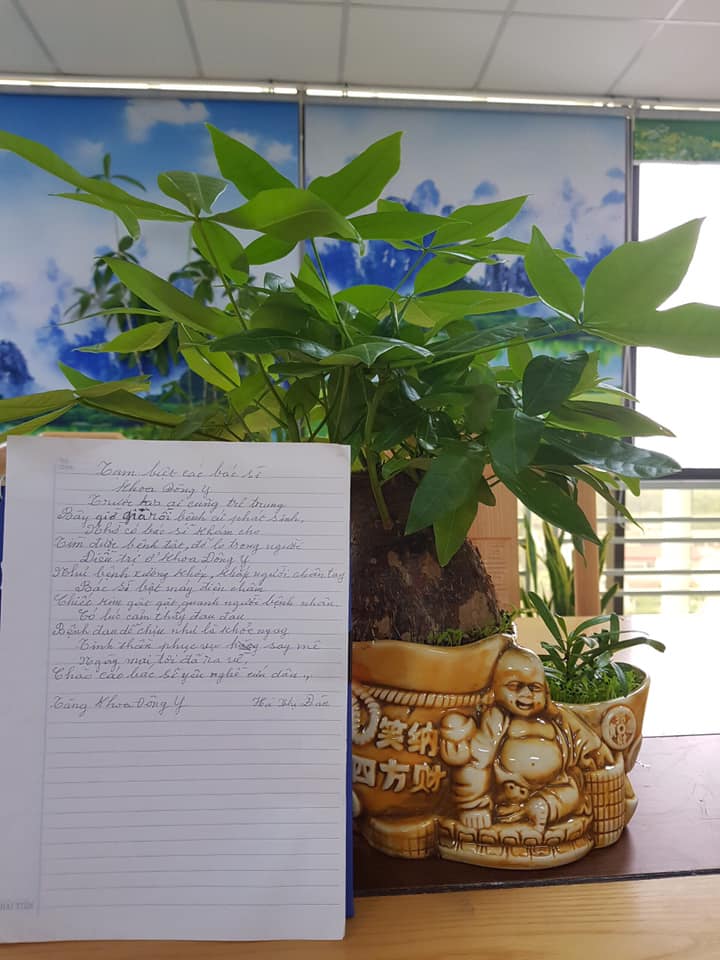 Tạm biệt các bác sĩ
Khoa Đông Y
Trước kia ai cũng trẻ trung
Bây giờ già rồi bệnh cũ phát sinh,
Nhờ có bác sĩ khám cho
Tìm được bệnh tật, để lo trong người
Điều trị ở khoa Đông Y
Như bệnh xương khớp, khắp người chân tay
Bác sĩ bật máy điện châm
Chiếc kim giật giật quanh người bệnh nhân
Có lúc cảm thấy đau đau
Bệnh đau dễ chịu như là khỏe ngay
Tinh thần phục vụ hăng say mê
Ngày mai tôi đã ra về,
Chào các bác sĩ yêu nghề cứu dân.,
Tặng Khoa Đông Y Hà Thị Đác
HẢI TIẾN
笑纳
四方财